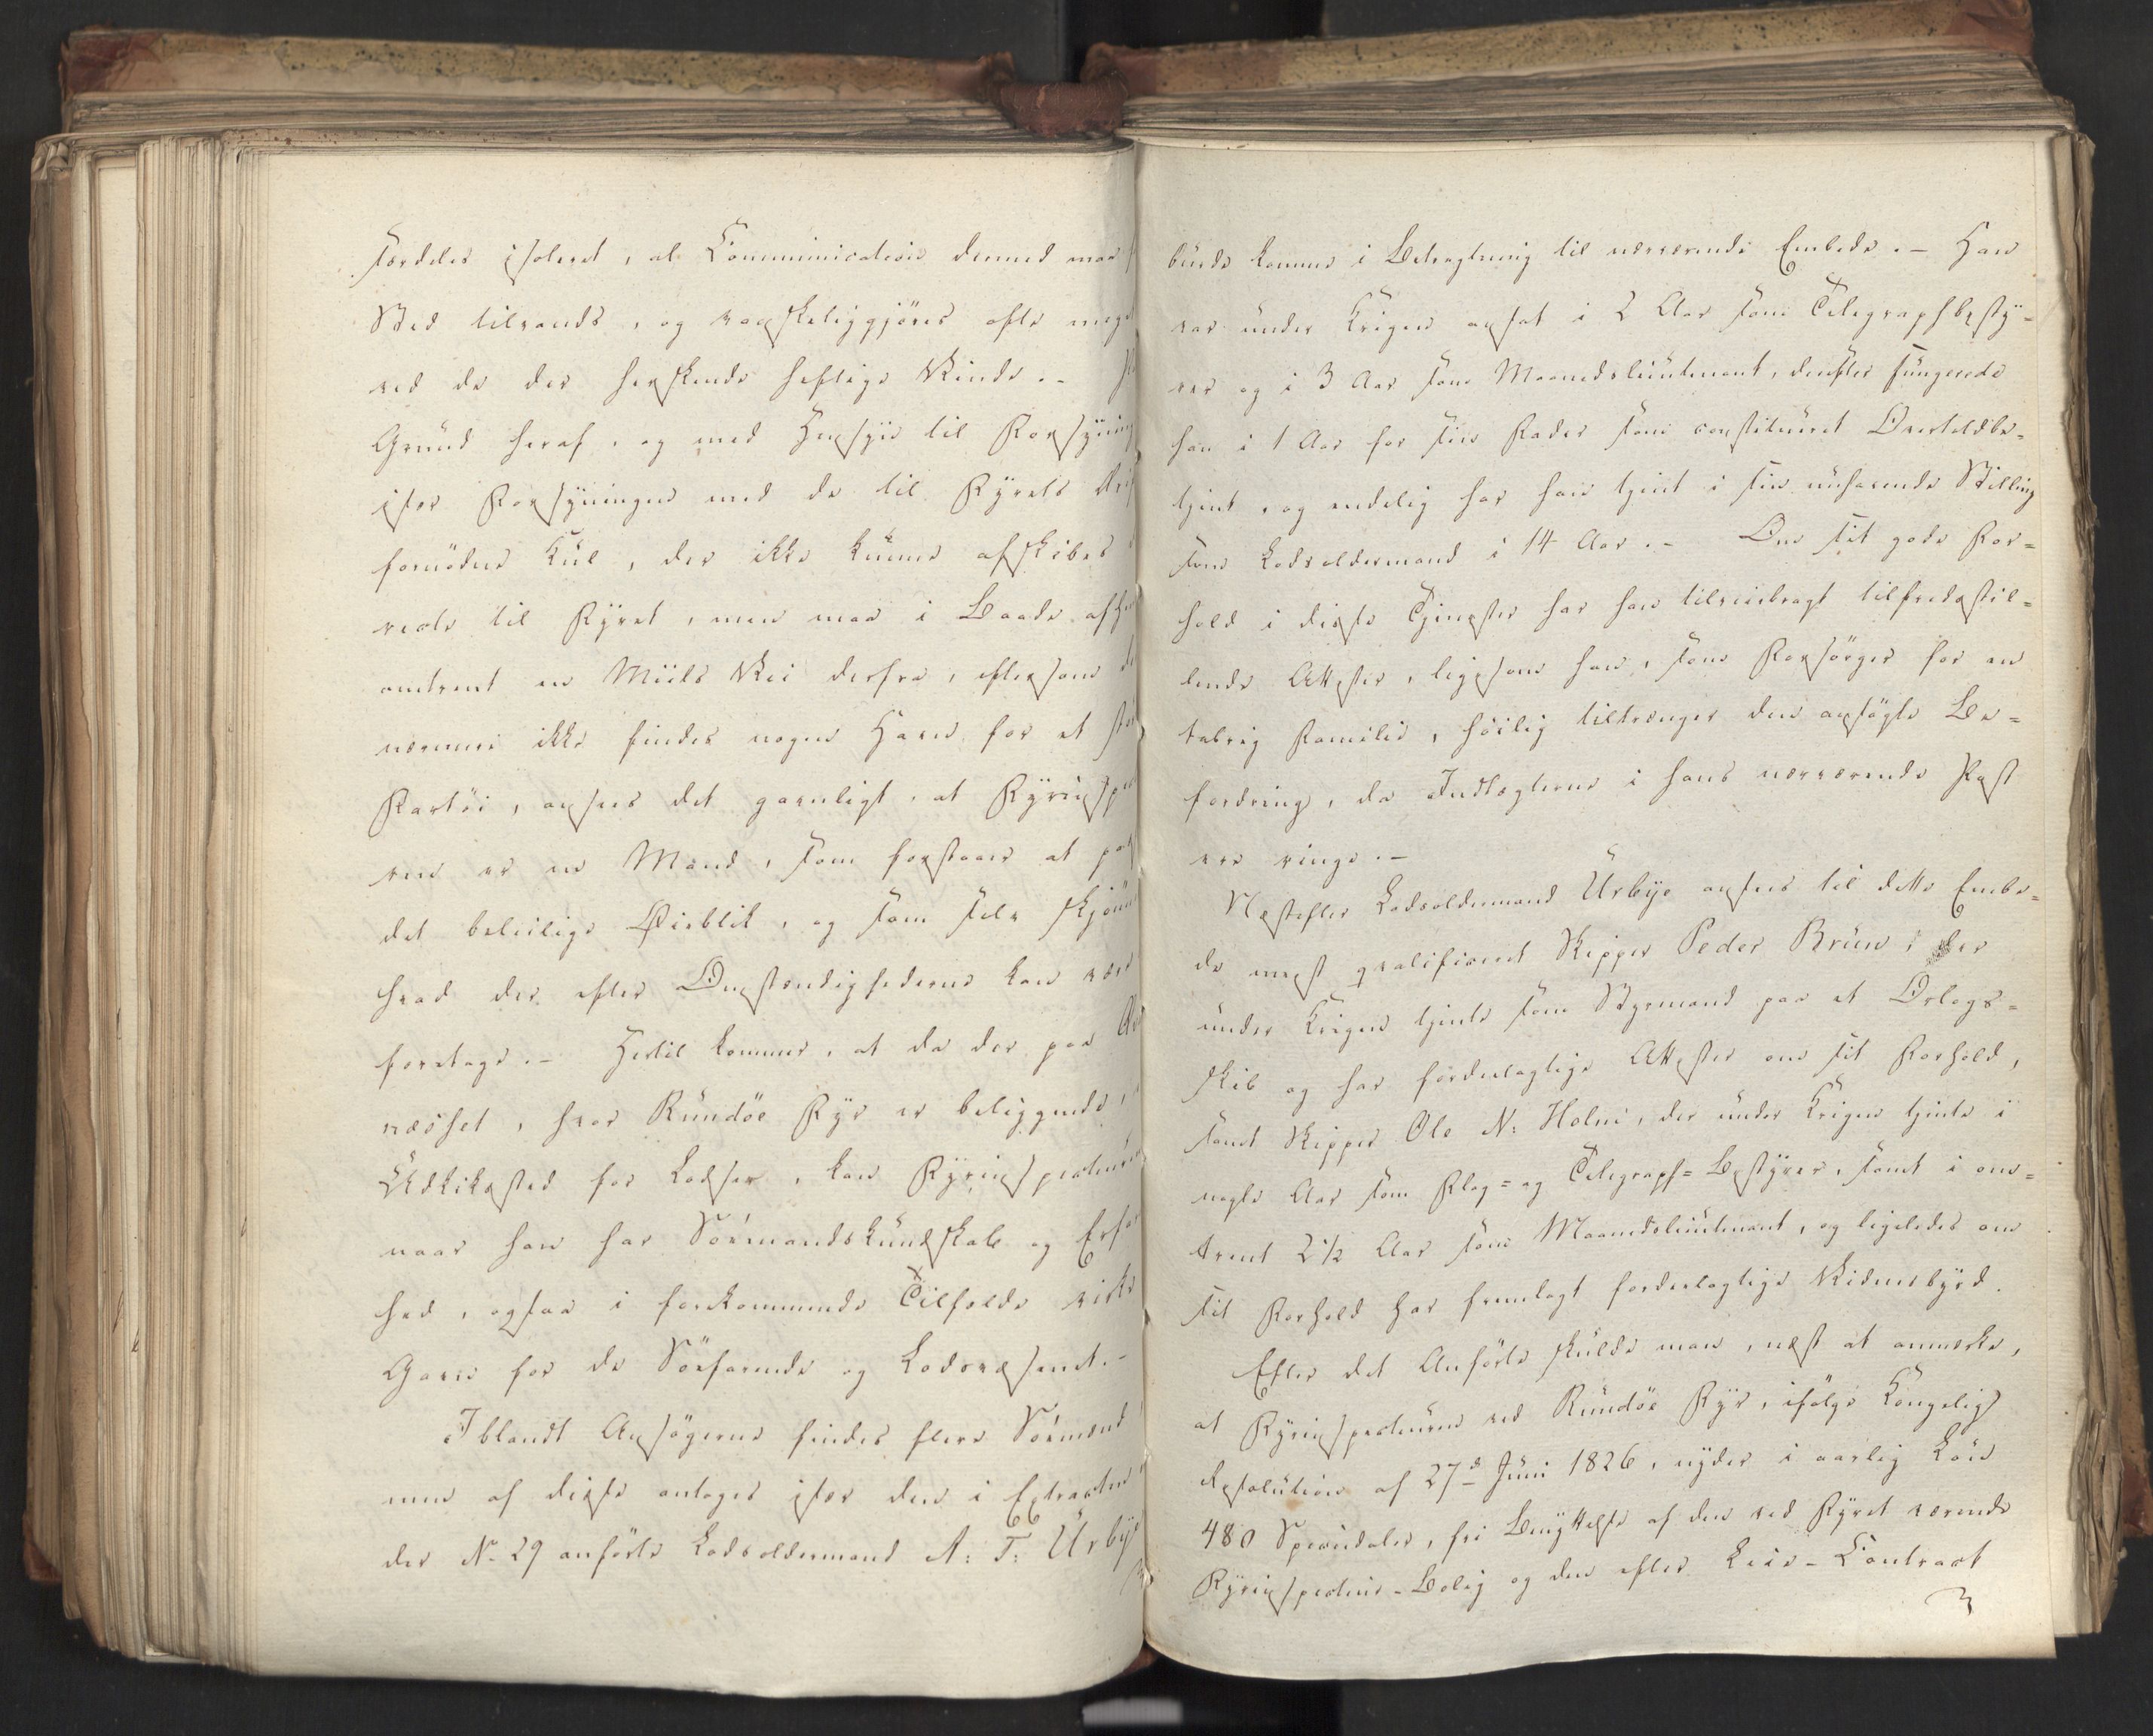 særdeles isoleret, at Communication dermed maa
Sted tilvands, og vanskeliggjöres ofte meget
ved de der herskende heftige Vinde. –
Grund heraf, og med Hensyn til Forsyning
især Forsyningen med de til Fyrets
fornödne Kul, der ikke kunne afskibes
recte til Fyret, men maa i Baade
omtrent en Miils Vei derfra, eftersom
nærmere ikke findes nogen Havn for et
Fartöi, ansees det gavnligt, at Fyrinspec
ren er en Mand, som forstaaer at
det beleilige Öieblik, og som selv skjönne
hvad der efter Omstændighederne kan være
foretage. – Hertil kommer, at da der paa
næsset, hvor Rundöe Fyr er beliggende,
Udkiksted for Lodser, kan Fyrinspecteuren
naar han har Sömandskundskab og Erfa
hed, ogsaa i forekommende Tilfælde virke
Gavn for de Söefarende og Lodsvæsenet. –
Iblandt Ansögerne findes flere Sömænd
men af disse antages især den i Extracten
der No 29 anförte Lodsoldermand A: T: Urbye
burde komme i Betragtning til nærværende Embede. – Han
var under Krigen ansat i 2 Aar som Telegraphbesty=
rer og i 3 Aar som Maanedslieutenant, derefter fungerede
han i 1 Aar for sin Fader som constitueret Overtoldbe=
tjent, og endelig har han tjent i sin nuhavende Stilling
som Lodsoldermand i 14 Aar. – Om sit gode For=
hold i disse Tjenester har han tilveiebragt tilfredsstil=
lende Attester, ligesom han, som Forsörger for en
talrig Familie, höilig tiltrænger den ansögte Be=
fordring, da Indtægterne i hans nærværende Post
ere ringe. –
Næstefter Lodsoldermand Urbye ansees til dette Embe=
de meest qvalificeret Skipper Peder Bruun, der
under Krigen tjente som Styrmand paa et Orlogs=
skib og har fordeelagtige Attester om sit Forhold,
samt Skipper Ole N: Holm, der under Krigen tjente i
nogle Aar som Flag= og Telegraph=Bestyrer, samt i om=
trent 2½ Aar som Maanedslieutenant, og ligeledes om
sit Forhold har fremlagt fordeelagtige Vidnesbyrd.
Efter det Anförte skulde man, næst at anmærke,
at Fyrinspecteuren ved Rundöe Fyr, ifölge Kongelig
Resolution af 27d Juni 1826, nyder i aarlig Lön
480 Speciedaler, fri Benyttelse af den ved Fyret værende
Fyrinspecteur-Bolig og den efter Leie-Contract